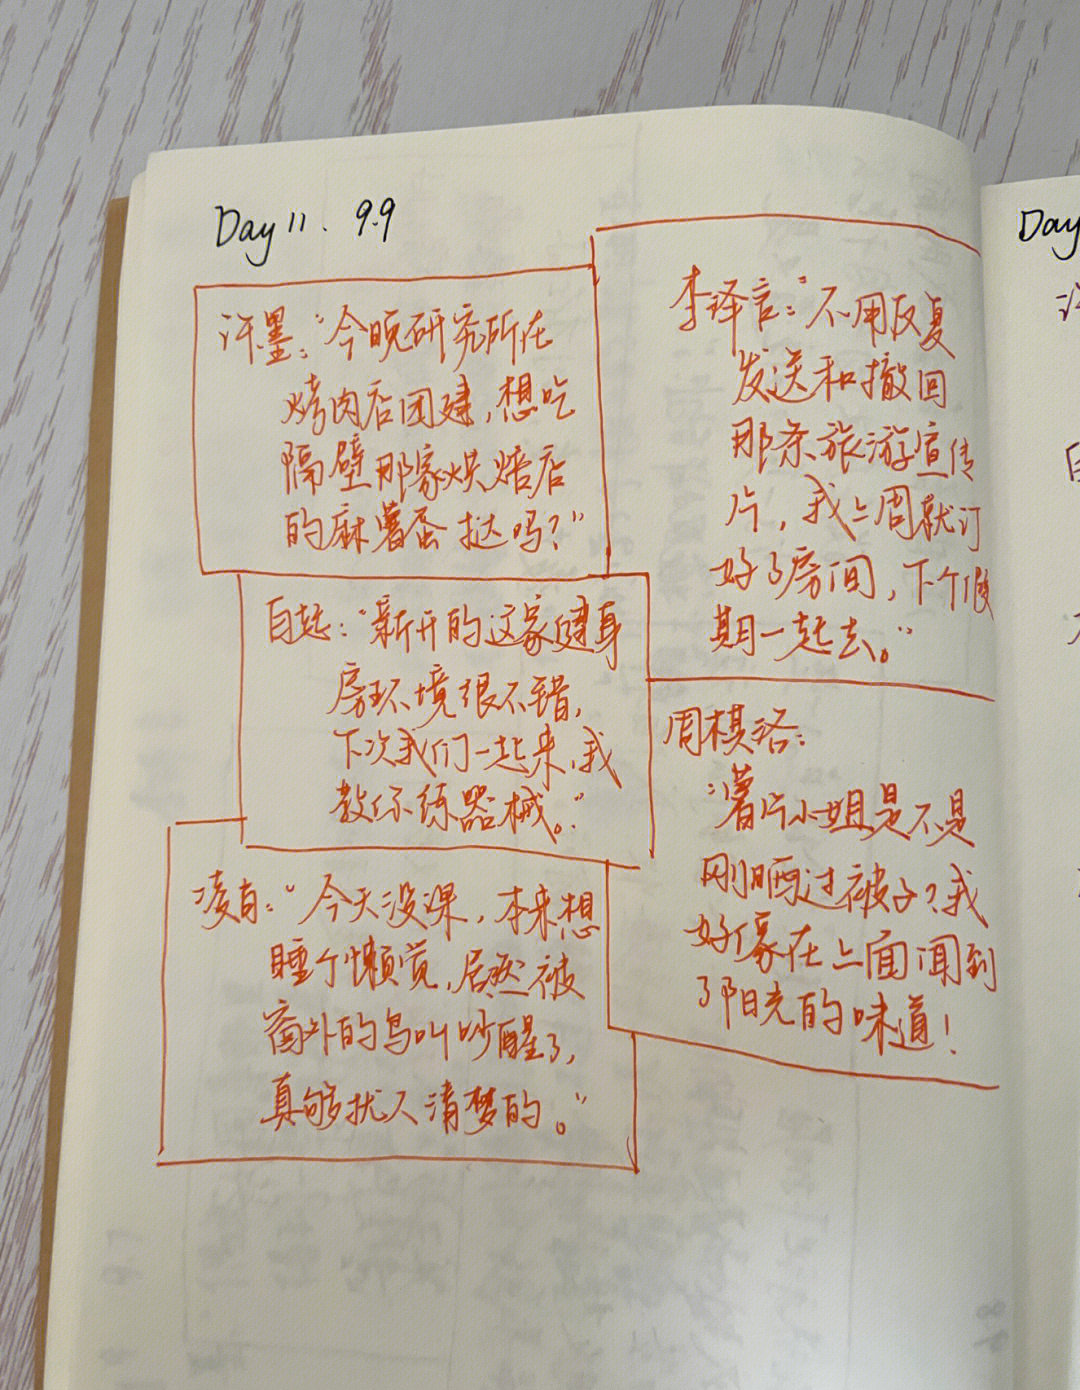 Day 11. 9.9
许墨:“今晚研究所在
烤肉店团建,想吃
隔壁那家烘焙店
的麻薯蛋挞吗?”
白起:“新开的这家健身
房环境很不错,
下次我们一起来,我
教你练器械。”
凌肖:“今天没课,本来想
睡个懒觉,居然被
窗外的鸟叫吵醒了,
真够扰人清梦的。”
李泽言:“不用反复
发送和撤回
那条旅游宣传
片,我上周就订
好了房间,下个假
期一起去。”
周棋洛:
“薯片小姐是不是
刚晒过被子?我
好像在上面闻到
了阳光的味道!
Day